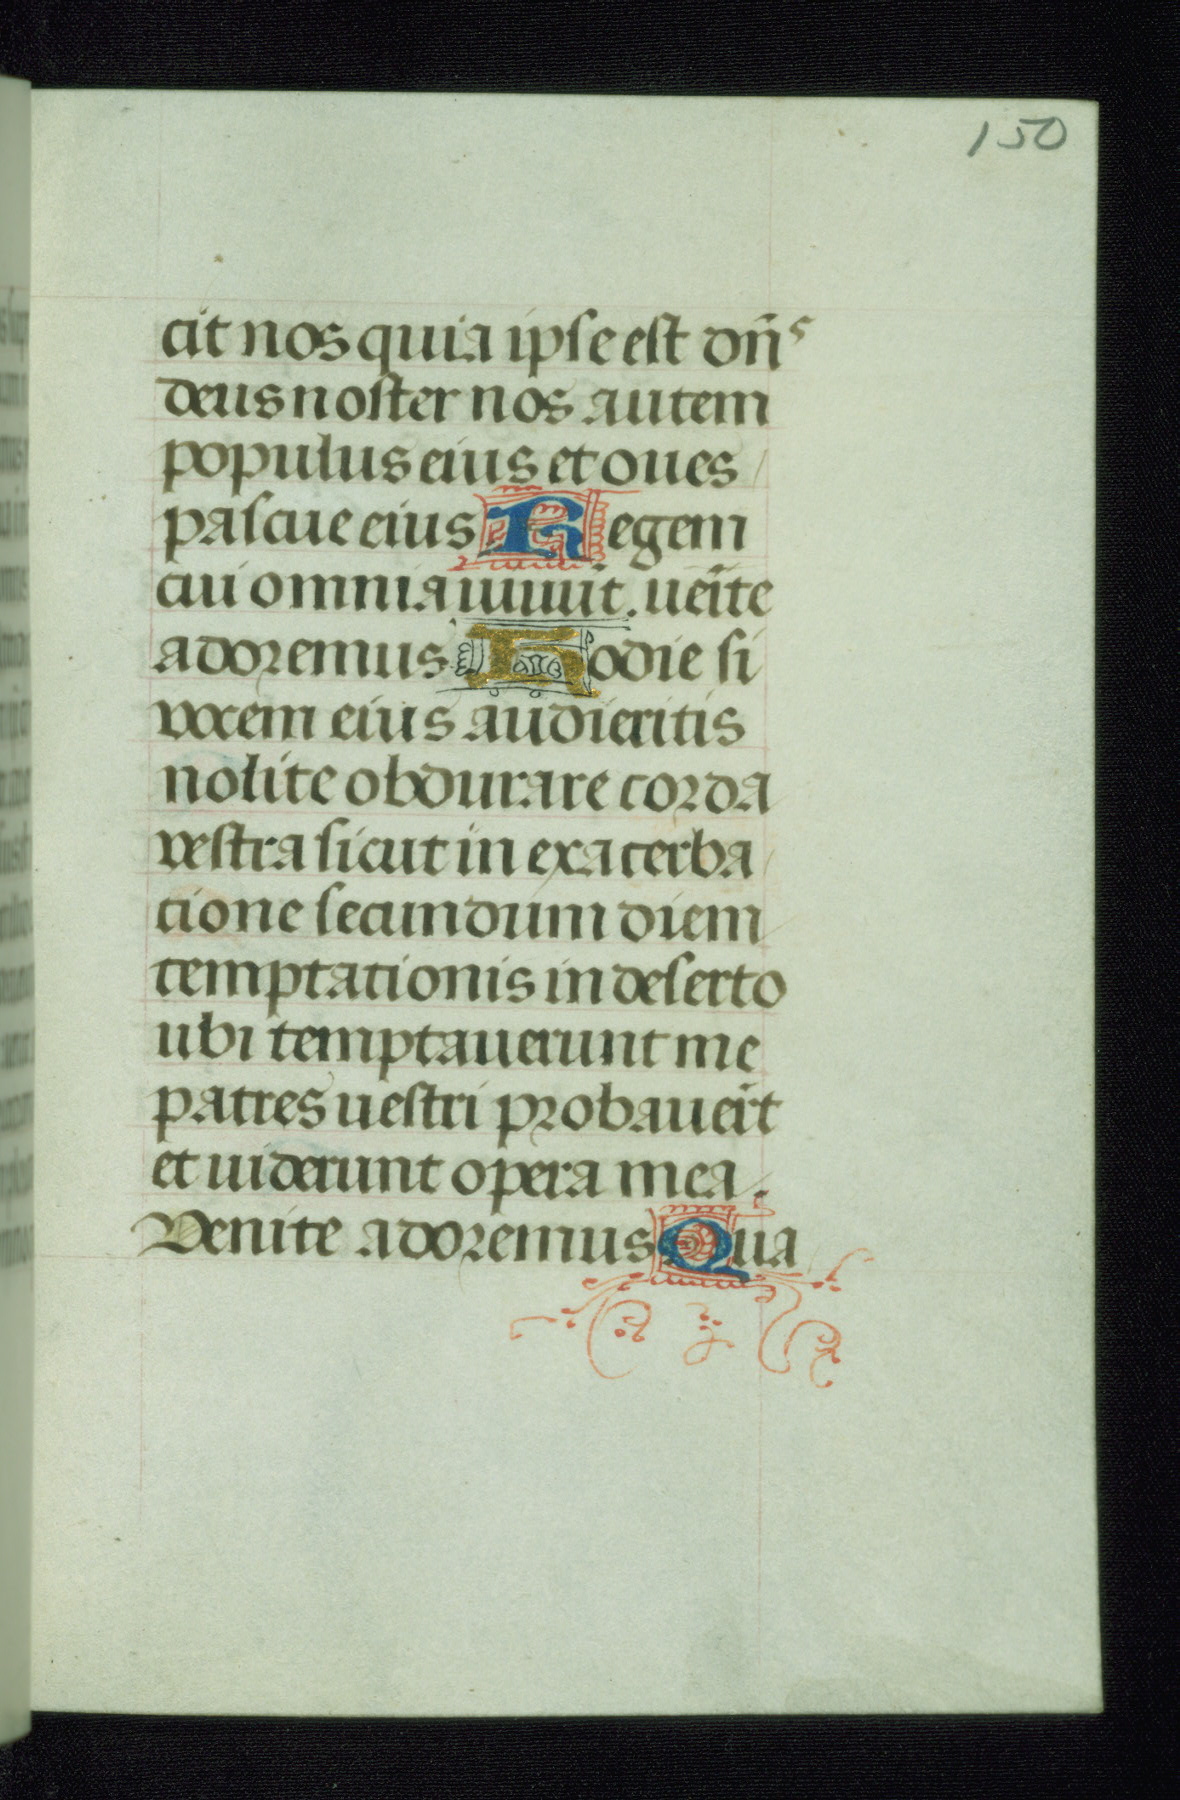 150
cit nos quia ipse est dn̄s
deus noster nos autem
populus eius et oues
pascue eius Regem
cui omnia uiuūt. ueīte
adoremus. Hodie si
vocem eius audieritis
nolite obdurare corda
vestra sicut in exacerba
cione secundum diem
temptationis in deserto
ubi temptauerunt me
patres uestri probauer̄t
et uiderunt opera mea.
Venite adoremus Qua